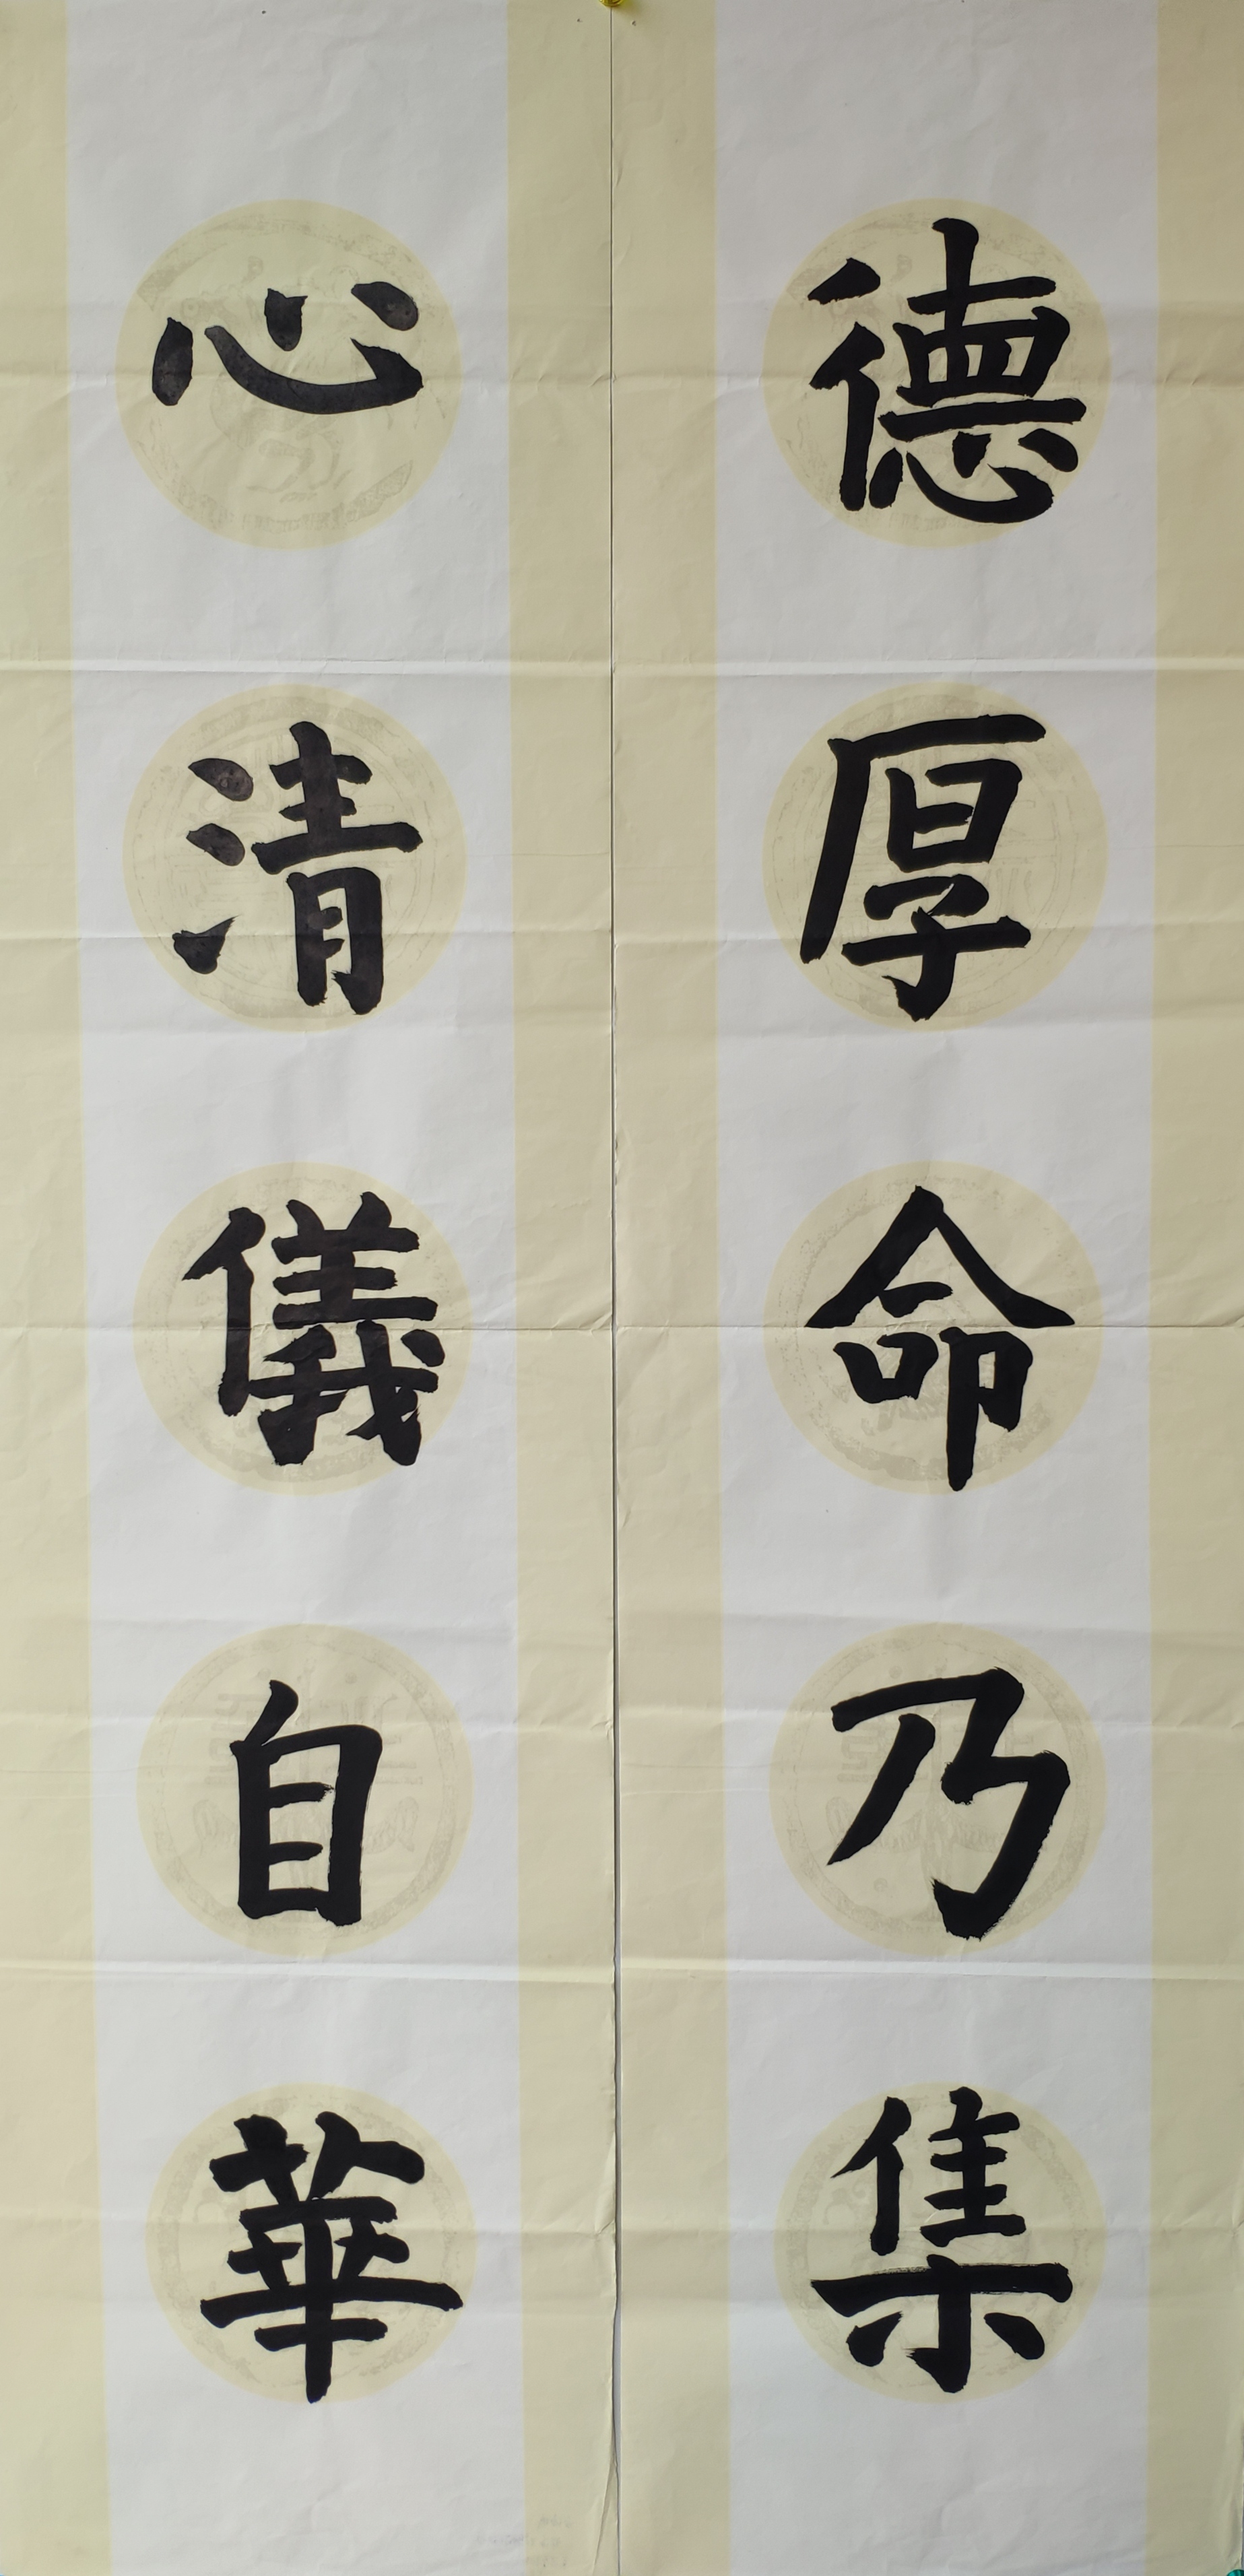 德厚命乃集
心清儀自華